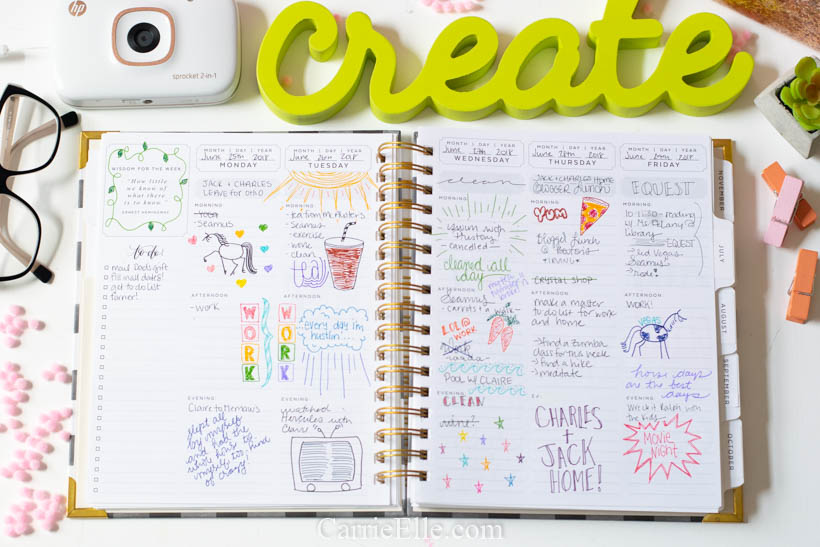 hp
sprocket 2-in-1
create
WISDOM FOR THE WEEK
"How little
we know of
what there
is to know."
ERNEST HEMINGWAY
to do:
MONTH | DAY | YEAR
June 25th 2018
MONDAY
JACK + CHARLES
LEAVE for OHIO
MORNING
YOGA
Seamus
AFTERNOON
-WORK
WORK
EVENING
Claire to Memaw's
slept all
by myself
and had the
myself too, kind
of crazy
MONTH | DAY | YEAR
June 26th 2018
TUESDAY
MORNING
-Seamus
-exercise
-work
-clean
AFTERNOON
WORK
every day I'm
hustlin'...
EVENING
watched
Hercules with
Claire
MONTH | DAY | YEAR
June 27th 2018
WEDNESDAY
clean
MORNING
cancelled
cleaned all
day
AFTERNOON
Seamus
carrots + walk
LOL @
WORK
POOL w/ CLAIRE
EVENING
CLEAN
wine?
MONTH | DAY | YEAR
June 28th 2018
THURSDAY
JACK + CHARLES HOME
blogger lunch
MORNING
YUM
blogger lunch @
crystal shop
AFTERNOON
make a master
to do list for work
and home
→find a zumba
class for this week
→find a hike
→meditate
EVENING
CHARLES
+
JACK
HOME!
MONTH | DAY | YEAR
June 29th 2018
FRIDAY
EQUEST
MORNING
library
EQUEST
Seamus
AFTERNOON
WORK!
horse days
are the best
days
EVENING
Wreck it Ralph with
the kids
MOVIE
NIGHT
NOVEMBER
JULY
AUGUST
SEPTEMBER
OCTOBER
CarrieElle.com